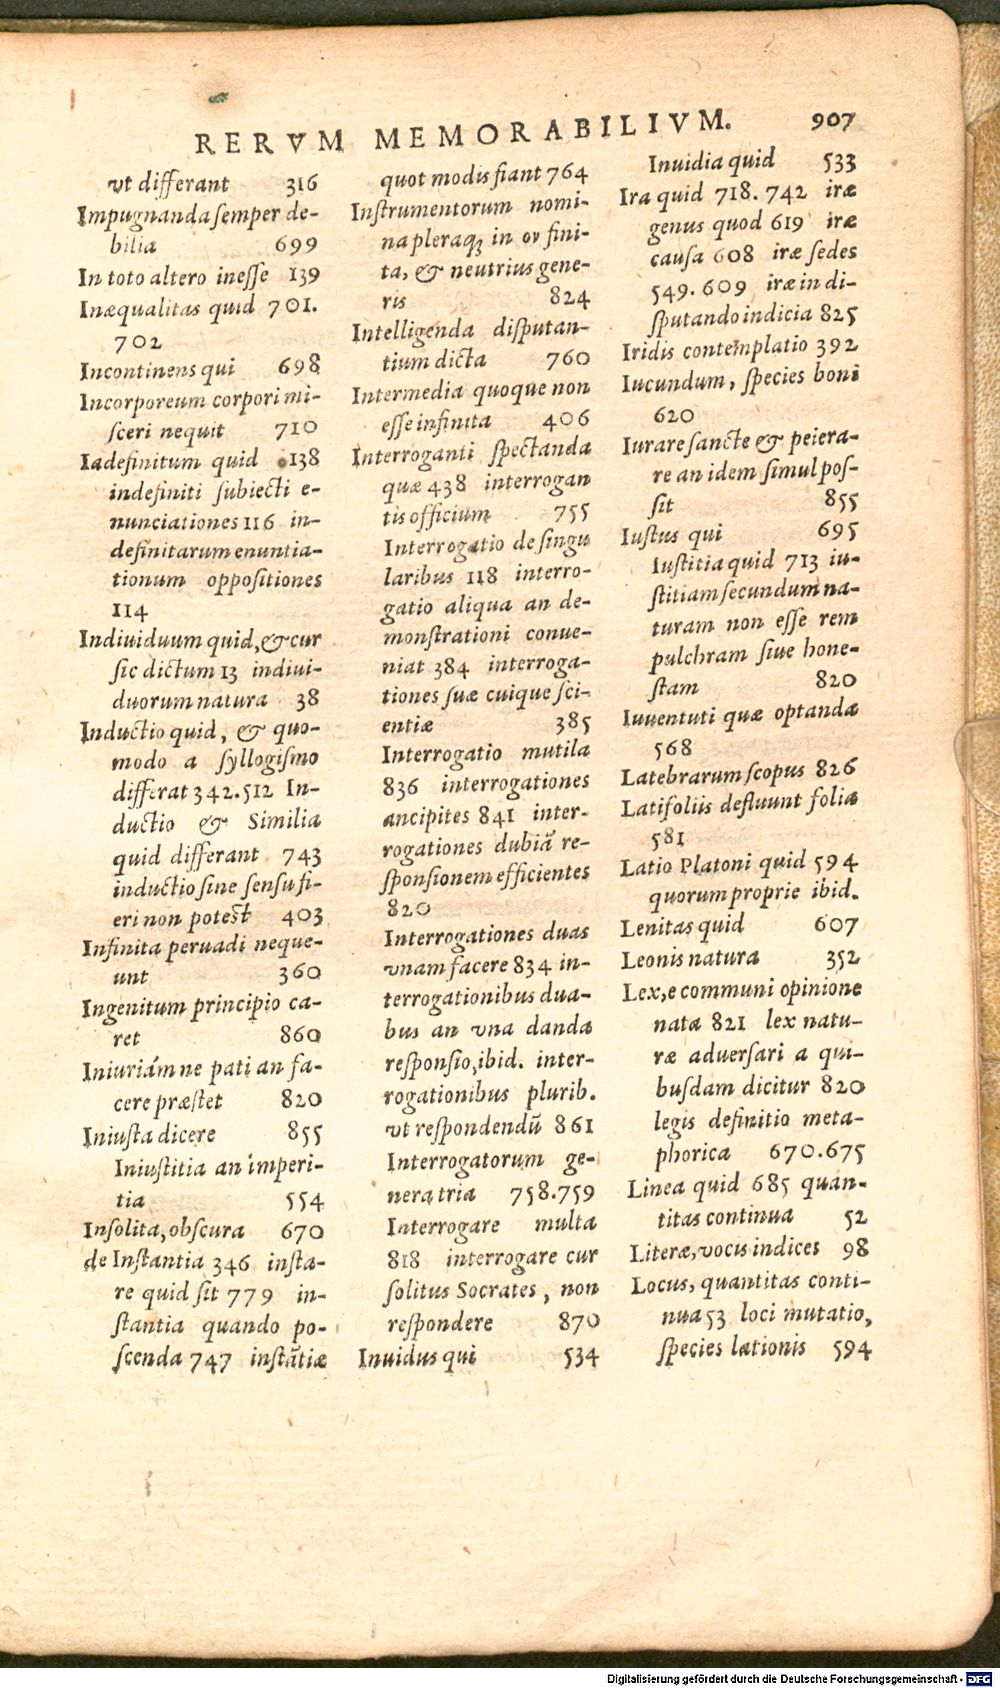 RERVM MEMORABILIVM. 907
vt differant 316
Impugnanda semper de-
bilia 699
In toto altero inesse 139
Inæqualitas quid 701.
702
Incontinens qui 698
Incorporeum corpori mi-
sceri nequit 710
Iadefinitum quid 138
indefiniti subiecti e-
nunciationes 116 in-
definitarum enuntia-
tionum oppositiones
114
Indiuiduum quid, & cur
sic dictum 13 indiui-
duorum natura 38
Inductio quid, & quo-
modo a syllogismo
differat 342.512 In-
ductio & Similia
quid differant 743
inductio sine sensu fi-
eri non potest 403
Infinita peruadi neque-
unt 360
Ingenitum principio ca-
ret 860
Iniuriámne pati an fa-
cere præstet 820
Iniusta dicere 855
Iniustitia an imperi-
tia 554
Insolita, obscura 670
de Instantia 346 insta-
re quid sit 779 in-
stantia quando po-
scenda 747 instātiæ
quot modis fiant 764
Instrumentorum nomi-
na pleraq; in ov fini-
ta, & neutrius gene-
ris 824
Intelligenda disputan-
tium dicta 760
Intermedia quoque non
esse infinita 406
Interroganti spectanda
quæ 438 interrogan
tis officium 755
Interrogatio de singu
laribus 118 interro-
gatio aliqua an de-
monstrationi conue-
niat 384 interroga-
tiones suæ cuique sci-
entiæ 385
Interrogatio mutila
836 interrogationes
ancipites 841 inter-
rogationes dubiā re-
sponsionem efficientes
820
Interrogationes duas
vnam facere 834 in-
terrogationibus dua-
bus an vna danda
responsio, ibid. inter-
rogationibus plurib.
vt respondendū 861
Interrogatorum ge-
nera tria 758.759
Interrogare multa
818 interrogare cur
solitus Socrates, non
respondere 870
Inuidus qui 534
Inuidia quid 533
Ira quid 718. 742 iræ
genus quod 619 iræ
causa 608 iræ sedes
549. 609 iræ in di-
sputando indicia 825
Iridis contemplatio 392
Iucundum, species boni
620
Iurare sancte & peiera-
re an idem simul pos-
sit 855
Iustus qui 695
Iustitia quid 713 iu-
stitiam secundum na-
turam non esse rem
pulchram siue hone-
stam 820
Iuuentuti quæ optanda
568
Latebrarum scopus 826
Latifoliis defluunt folia
581
Latio Platoni quid 594
quorum proprie ibid.
Lenitas quid 607
Leonis natura 352
Lex, e communi opinione
nata 821 lex natu-
ræ aduersari a qui-
busdam dicitur 820
legis definitio meta-
phorica 670.675
Linea quid 685 quan-
titas continua 52
Literæ, vocis indices 98
Locus, quantitas conti-
nua 53 loci mutatio,
species lationis 594
Digitalisierung gefördert durch die Deutsche Forschungsgemeinschaft - DFG